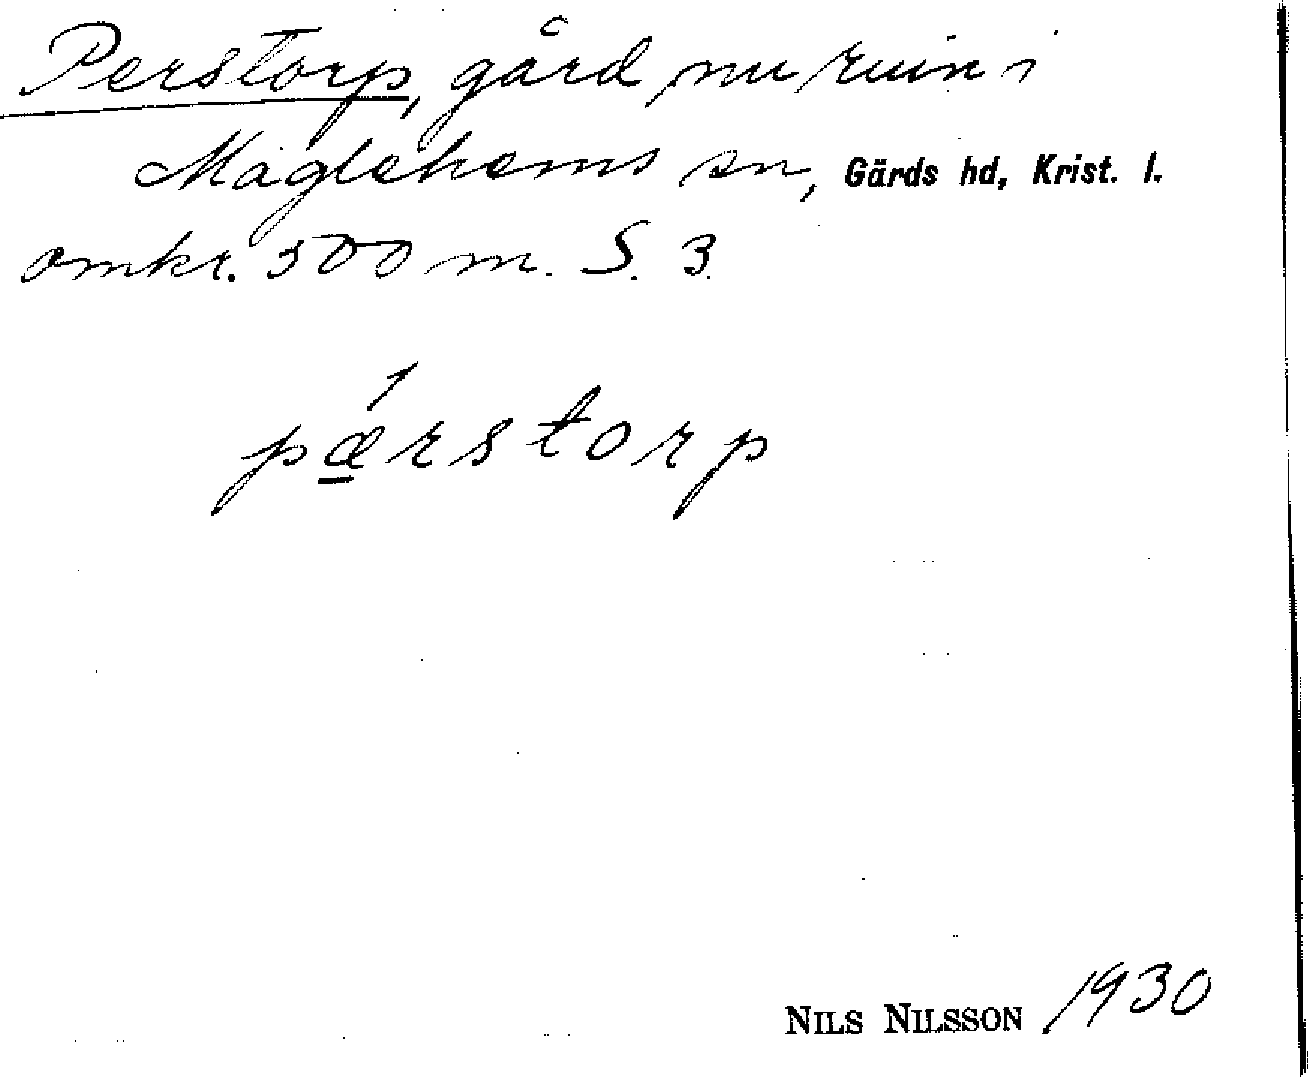 Perstorp, gård nu ruin i
Maglehems sn, Gärds hd, Krist. l.
omkr. 500 m. S. 3.
pǽ̱rstorp
NILS NILSSON 1930